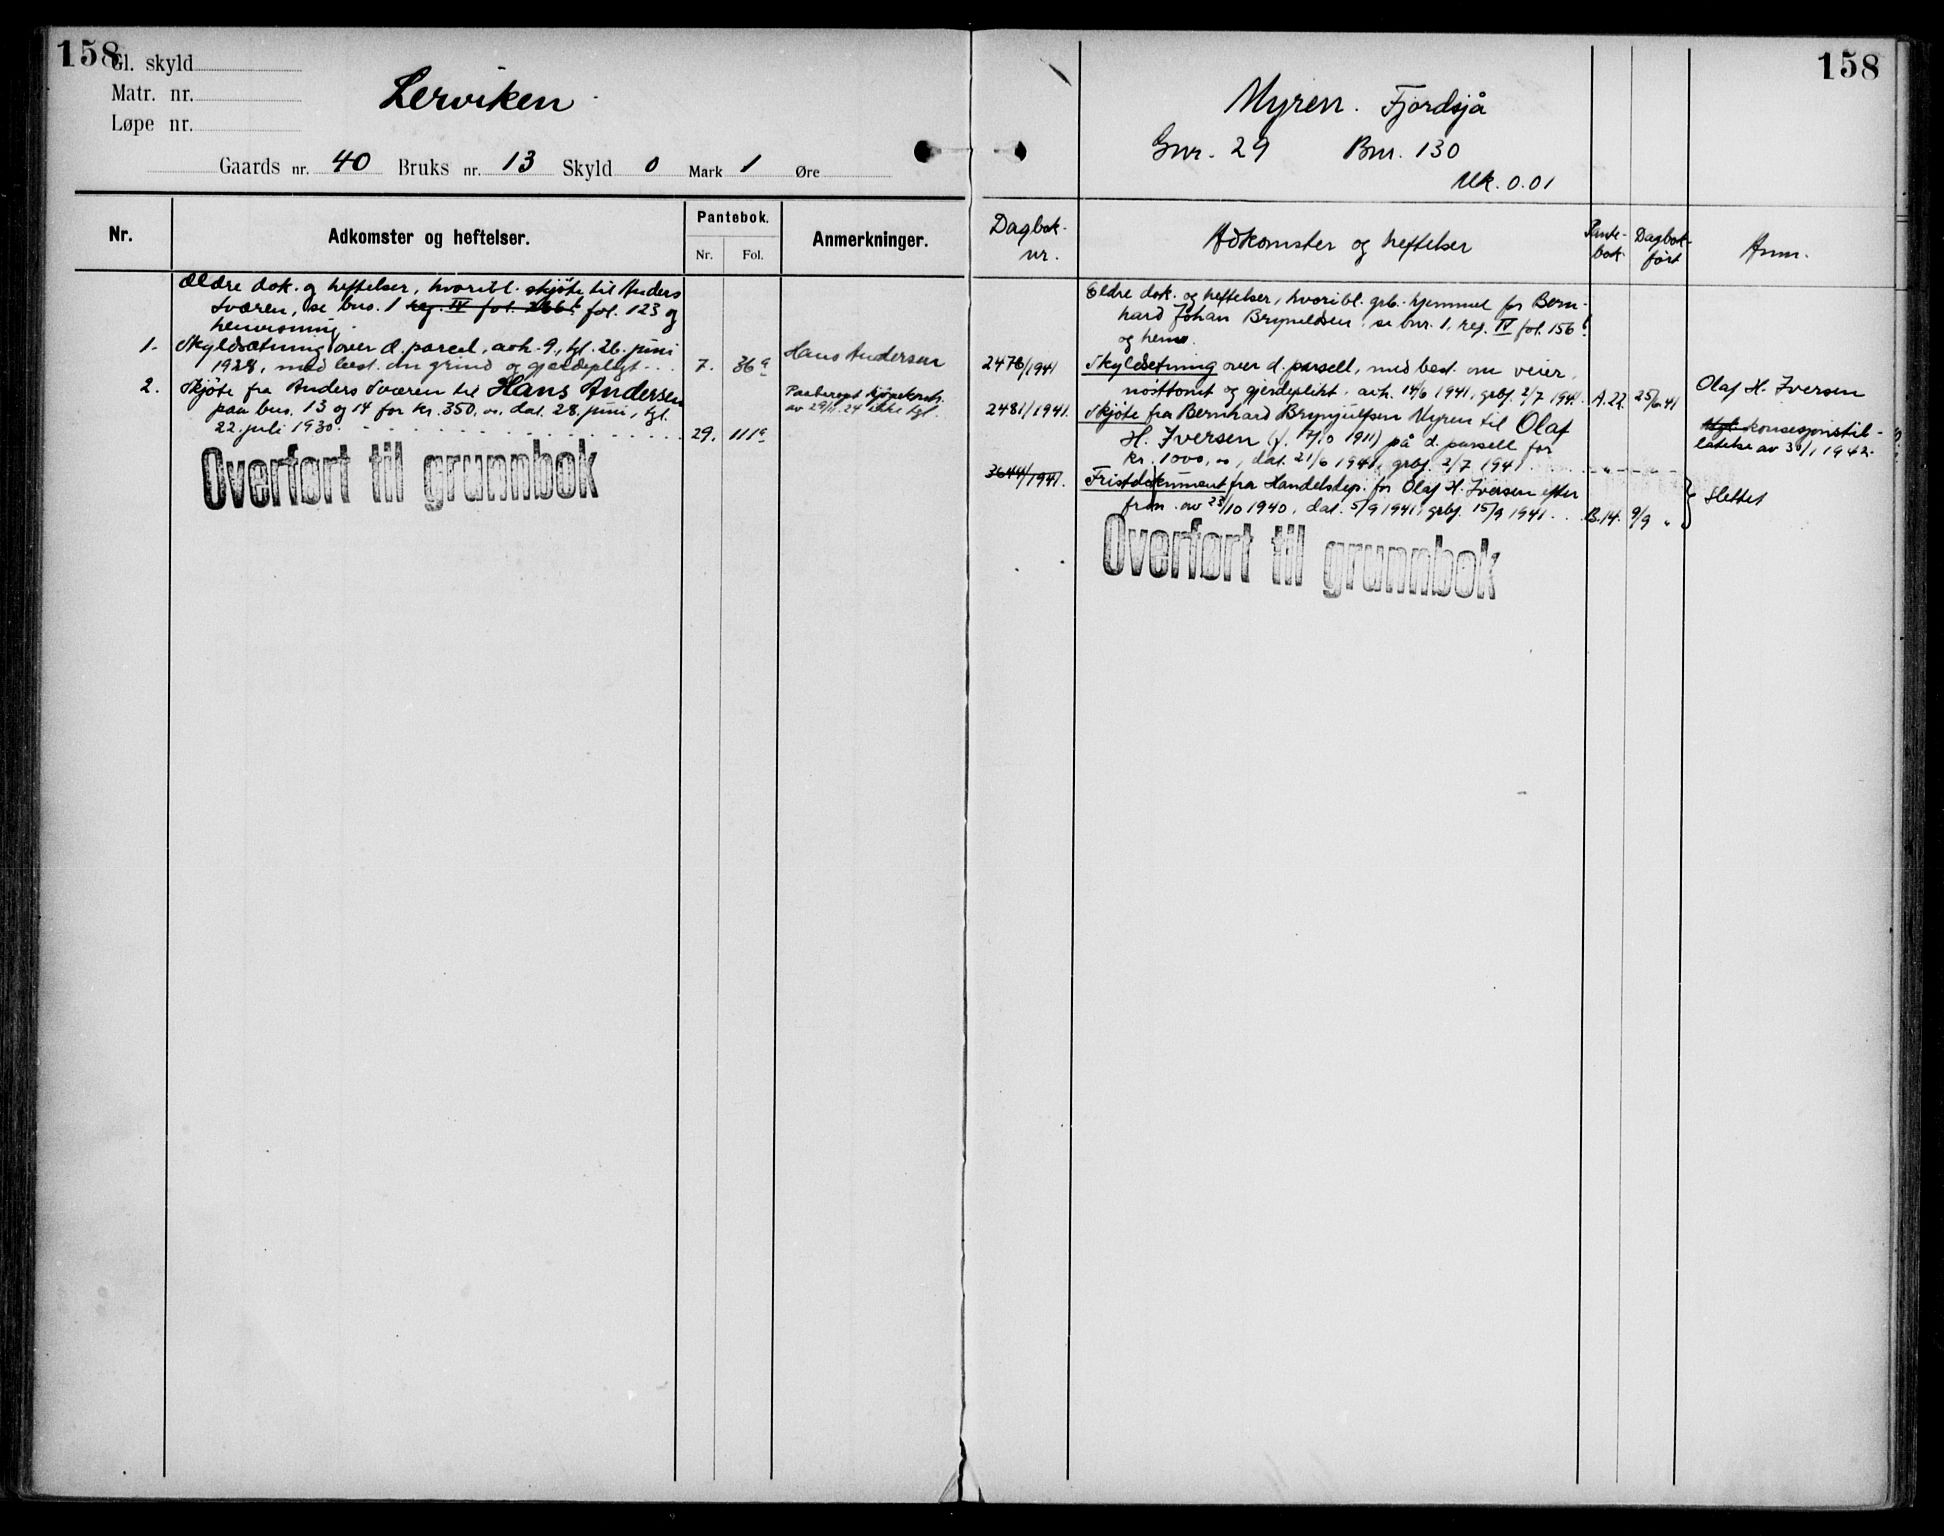 158
Gl. skyld
Matr. nr.
Løpe nr.
Lerviken
Gaards nr. 40 Bruks nr. 13 Skyld 0 Mark 1 Øre
Nr.
Adkomster og heftelser.
Pantebok.
Nr. Fol.
Anmerkninger.
Ældre dok. og heftelser, hvoribl. skjøte til Anders
Sværen, se bns. 1 reg. IV fol. 266b fol. 123 og
henvisning.
1. Skyldsætning over d. parcel, avh. 9., tgl. 26. juni
1928, med best. om grind og gjærdepligt... 7. 86a
Hans Andersen
2. Skjøte fra Anders Sværen til Hans Andersen
paa bns. 13 og 14 for kr. 350,00, dat. 28. juni, tgl.
22. juli 1930. 29. 111a
Paaberopt kjøpekontr.
av 29/11.24 ikke tgl.
Overført til grunnbok
158
Myren. Fjordsjå
Gnr. 29 Bnr. 130
Mk. 0.01
Dagbok-
nr.
Adkomster og heftelser
Pante-
bok
Dagbok-
ført
Anm.
Eldre dok. og heftelser, hvoribl. grb.-hjemmel for Bern-
hard Johan Brynildsen, se bnr. 1, reg. IV fol. 156b
og henv.
2476/1941 Skyldsetning over d. parsell, med best. om veier,
nøsttomt og gjerdeplikt, avh. 14/6 1941, grbf. 2/7 1941. A.22. 25/6 41
Olaf H. Iversen
2481/1941. Skjøte fra Bernhard Brynjulfsen Myren til Olaf
H. Iversen (f. 17/10 1911) på d. parsell for
kr. 1000,00, dat. 21/6 1941, grbf. 2/7 1941.
konsesjonstil-
latelse av 30/1 1942.
3644/1941. Fristdokument fra Handelsdep. for Olaf H. Iversen efter
fron. av 23/10 1940, dat. 5/9 1941, grbf. 15/9 1941. B.14. 9/9 "
Slettet
Overført til grunnbok